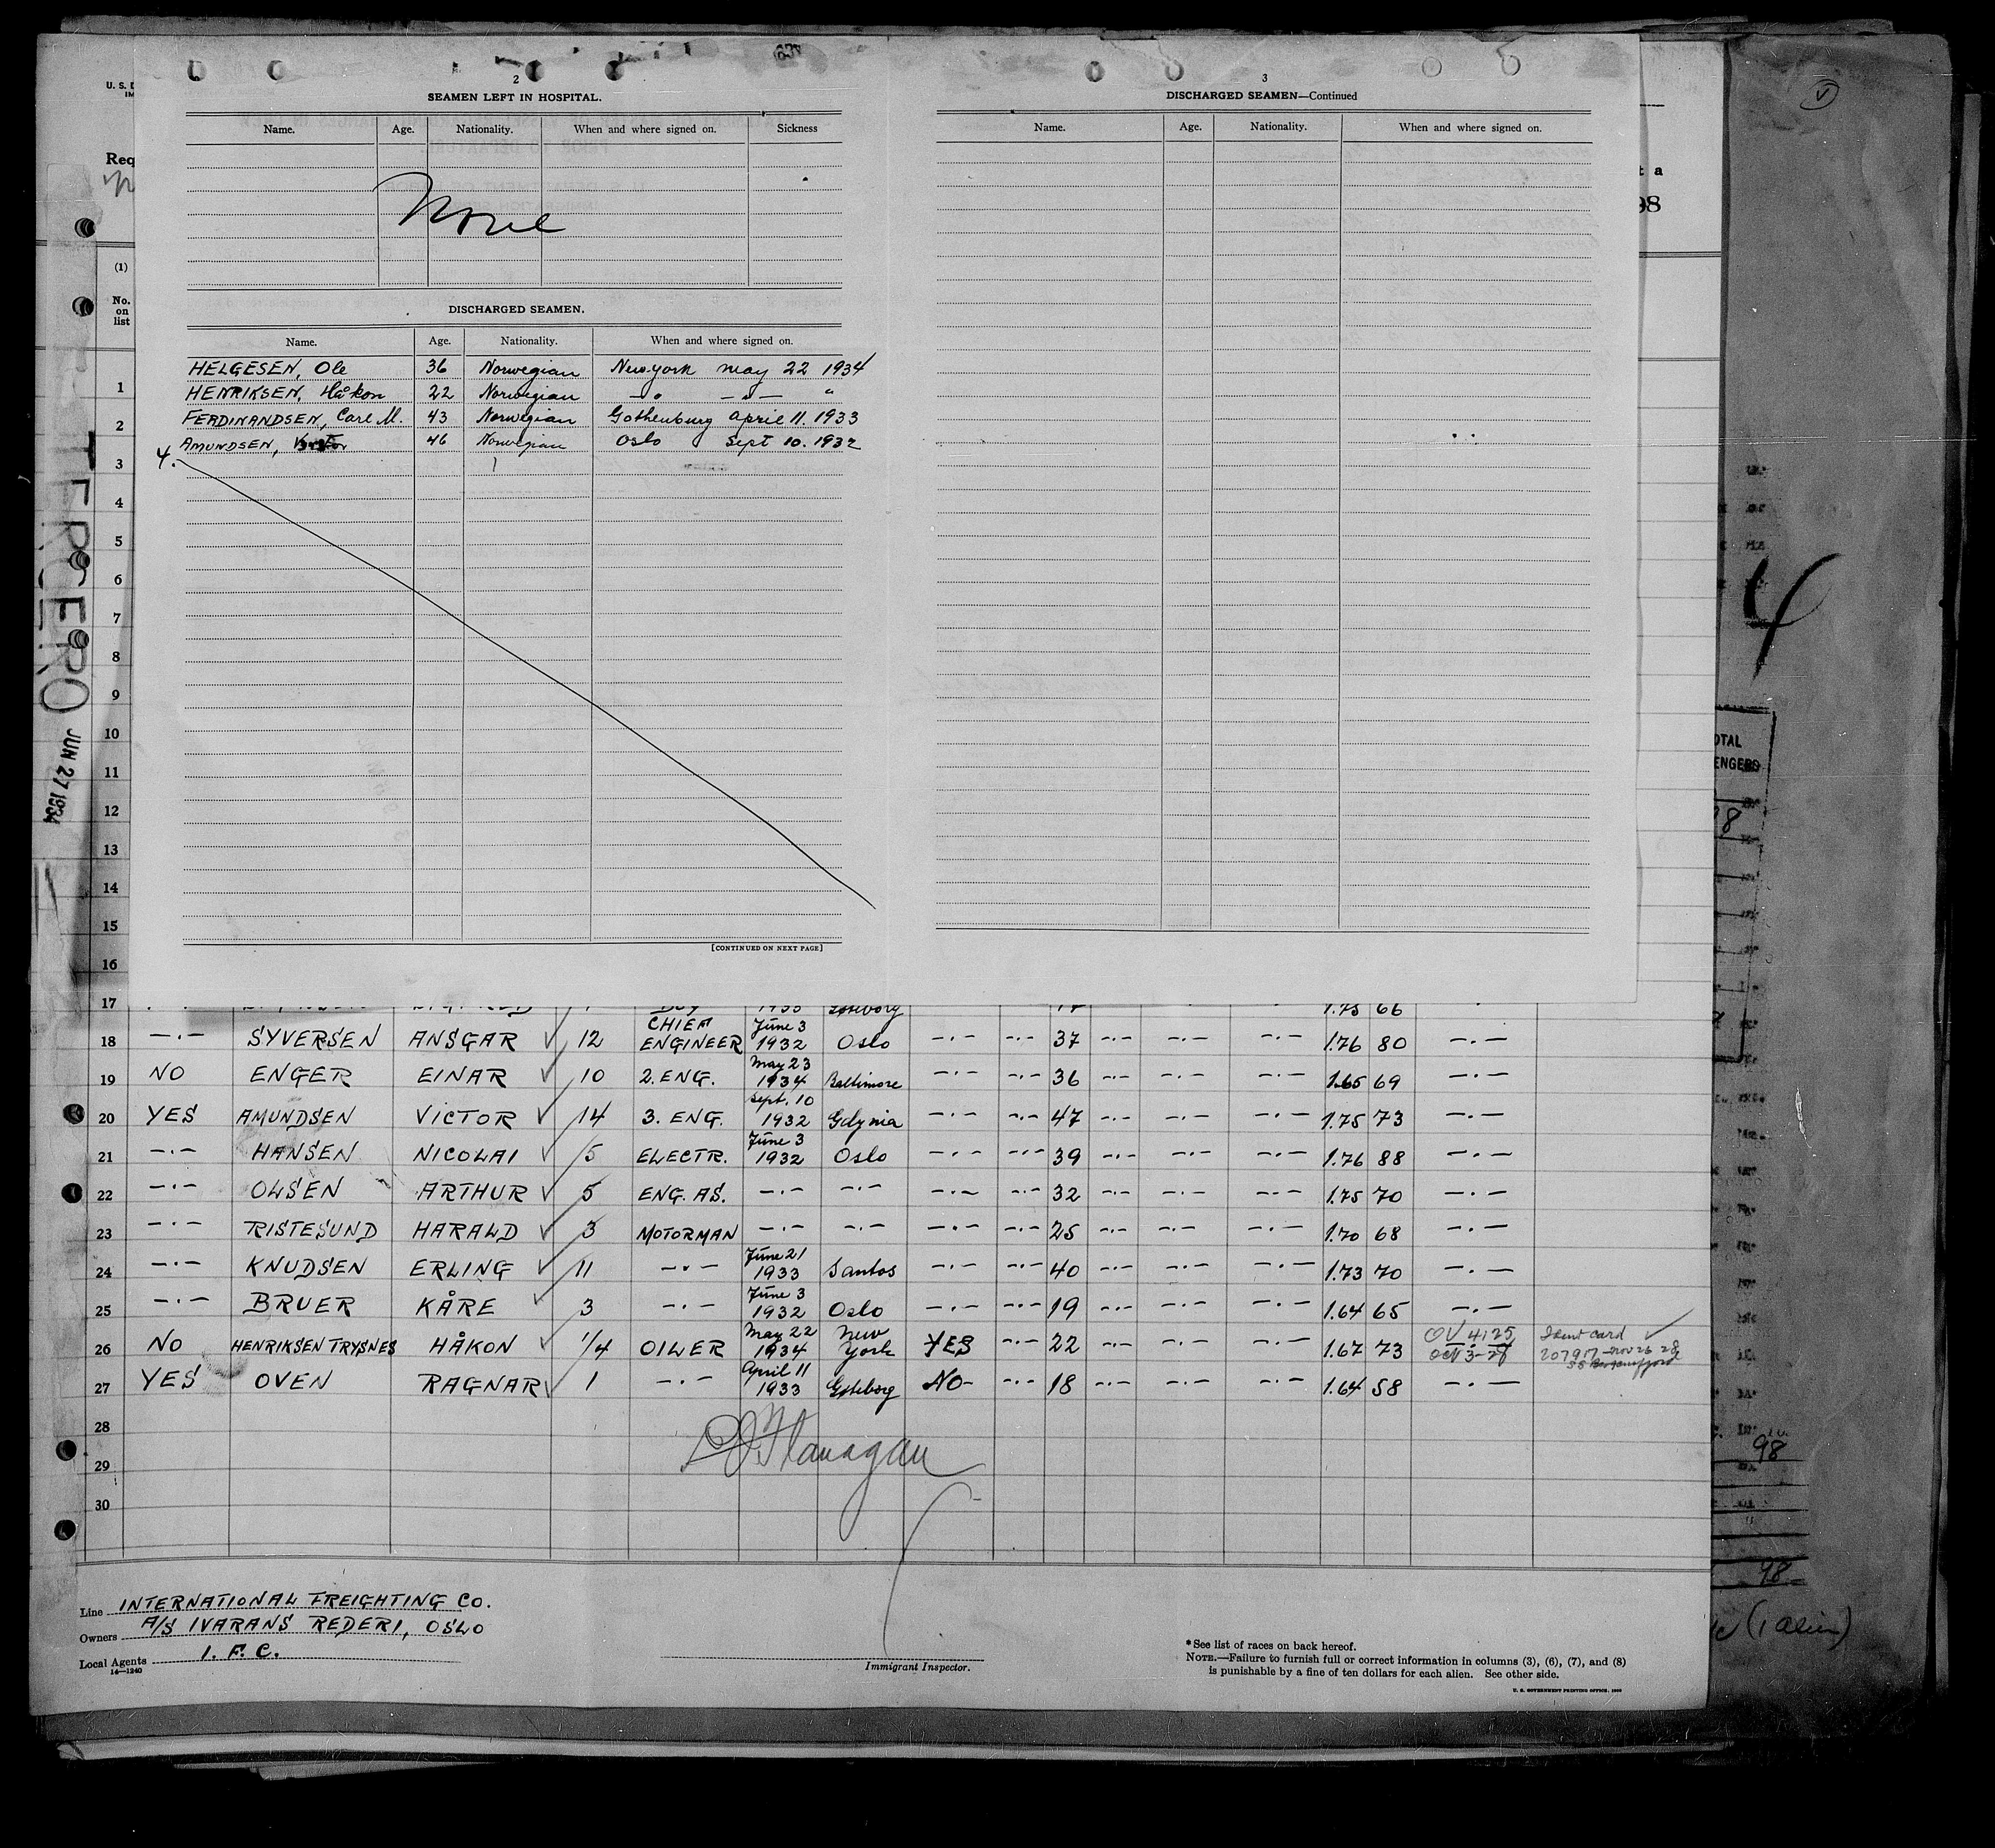 2
SEAMEN LEFT IN HOSPITAL.
Name. Age. Nationality. When and where signed on. Sickness
None
DISCHARGED SEAMEN.
Name. Age. Nationality. When and where signed on.
HELGESEN, Ole 36 Norwegian New York May 22 1934
HENRIKSEN, Håkon 22 Norwegian —"— —"— "
FERDINANDSEN, Carl M. 43 Norwegian Gothenburg April 11. 1933
AMUNDSEN, 46 Norwegian Oslo Sept 10. 1932
4.
[CONTINUED ON NEXT PAGE]
3
DISCHARGED SEAMEN—Continued
Name. Age. Nationality. When and where signed on.
U. S. D
IM
Req
t a
98
(1)
No.
on
list
1
2
3
4
5
6
7
8
9
10
11
12
13
14
15
16
17 BOY 1933 Göteborg 17 1.73 66
18 —·— SYVERSEN ANSGAR ✓ 12 CHIEF ENGINEER June 3 1932 Oslo —·— —·— 37 —·— —·— —·— 1.76 80 —·—
19 NO ENGER EINAR ✓ 10 2. ENG. May 23 1934 Baltimore —·— —·— 36 —·— —·— —·— 1.65 69 —·—
20 YES AMUNDSEN VICTOR ✓ 14 3. ENG. Sept. 10 1932 Gdynia —·— —·— 47 —·— —·— —·— 1.75 73 —·—
21 —·— HANSEN NICOLAI ✓ 5 ELECTR. June 3 1932 Oslo —·— —·— 39 —·— —·— —·— 1.76 88 —·—
22 —·— OLSEN ARTHUR ✓ 5 ENG. AS. —·— —·— —·— —·— 32 —·— —·— —·— 1.75 70 —·—
23 —·— RISTESUND HARALD ✓ 3 MOTORMAN —·— —·— —·— —·— 25 —·— —·— —·— 1.70 68 —·—
24 —·— KNUDSEN ERLING ✓ 11 —·— June 21 1933 Santos —·— —·— 40 —·— —·— —·— 1.73 70 —·—
25 —·— BRUER KÅRE ✓ 3 —·— June 3 1932 Oslo —·— —·— 19 —·— —·— —·— 1.64 65 —·—
26 NO HENRIKSEN TRYSNES HÅKON ✓ 1/4 OILER May 22 1934 New York YES —·— 22 —·— —·— —·— 1.67 73 Ident card ✓ 207917 - Nov 26 28
27 YES OVEN RAGNAR ✓ 1 —·— April 11 1933 Göteborg NO- —·— 18 —·— —·— —·— 1.64 58 —·—
28
29
30
Flanagan
Line INTERNATIONAL FREIGHTING CO.
Owners A/S IVARANS REDERI, OSLO
Local Agents I. F. C.
14—1240
Immigrant Inspector.
*See list of races on back hereof.
NOTE.—Failure to furnish full or correct information in columns (3), (6), (7), and (8)
is punishable by a fine of ten dollars for each alien. See other side.
JUN 27 1934
4
OTAL
ENGERS
98
98
(1 alien)